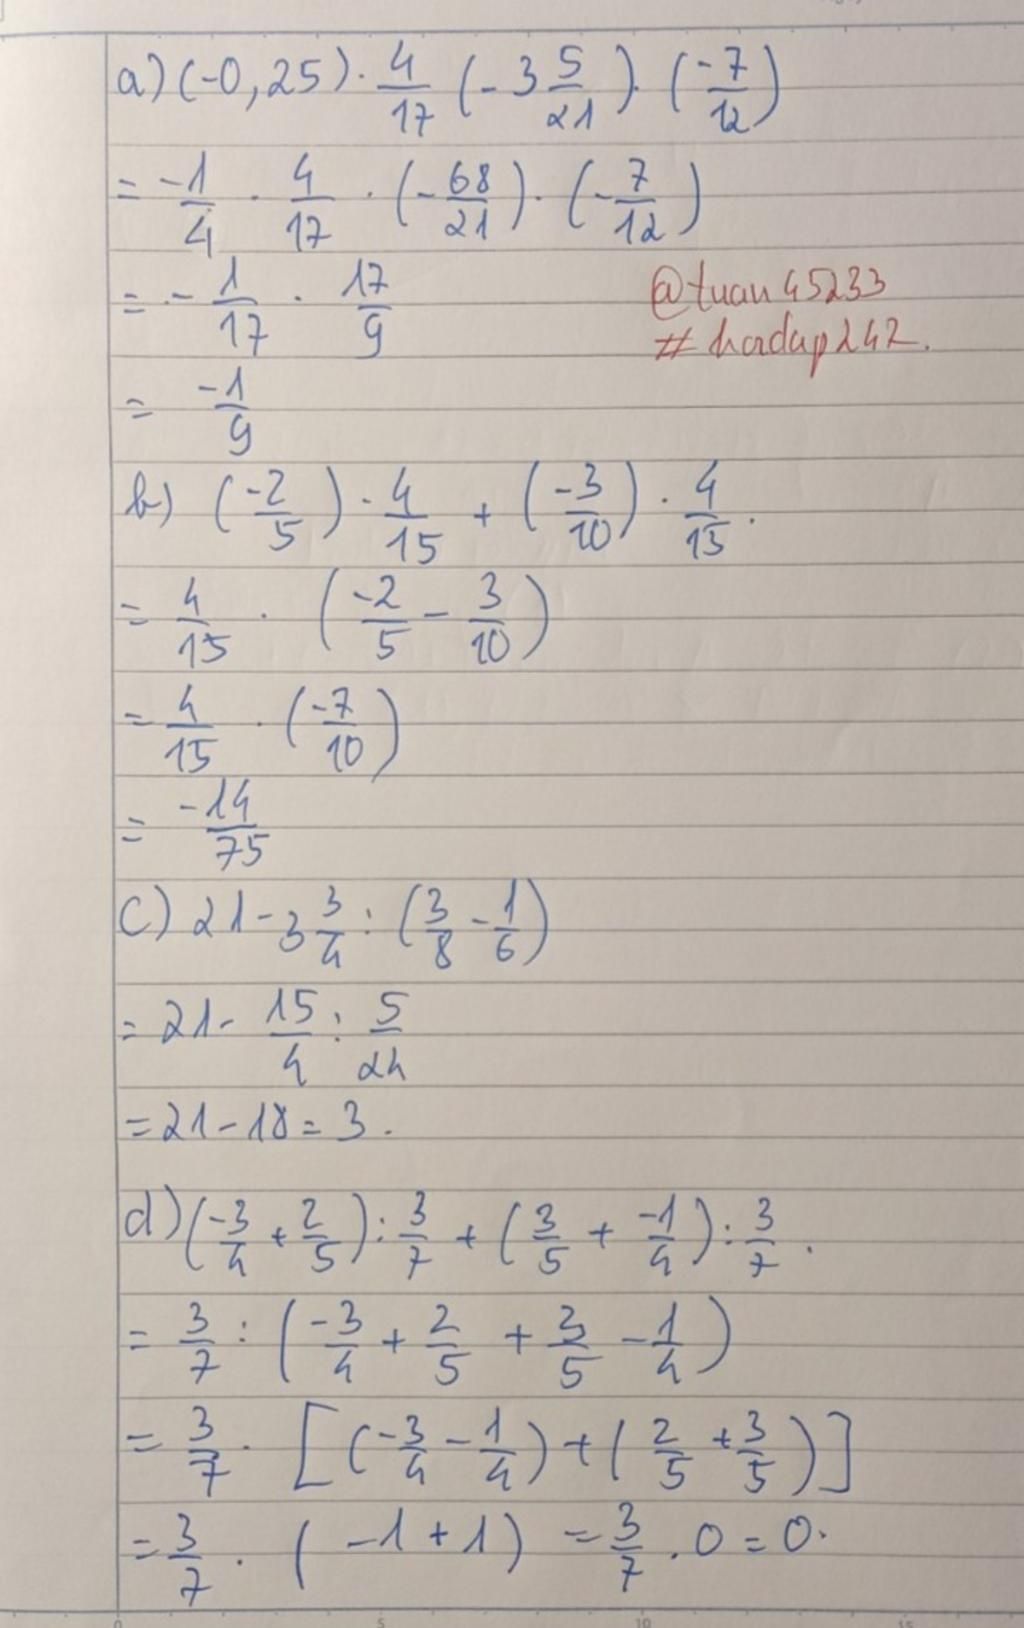 a) (-0,25) . 4/17 (-3 5/21) . (-7/12)
= -1/4 . 4/17 . (-68/21) . (-7/12)
= -1/17 . 17/9
@tuan45233
#hoidap247.
= -1/9
b) (-2/5) . 4/15 + (-3/10) . 4/15.
= 4/15 . (-2/5 - 3/10)
= 4/15 . (-7/10)
= -14/75
c) 21 - 3 3/4 : (3/8 - 1/6)
= 21 - 15/4 : 5/24
= 21 - 18 = 3.
d) (-3/4 + 2/5) : 3/7 + (3/5 + -1/4) : 3/7.
= 3/7 : (-3/4 + 2/5 + 3/5 - 1/4)
= 3/7 . [(-3/4 - 1/4) + (2/5 + 3/5)]
= 3/7 . (-1 + 1) = 3/7 . 0 = 0.
0 5 10 15